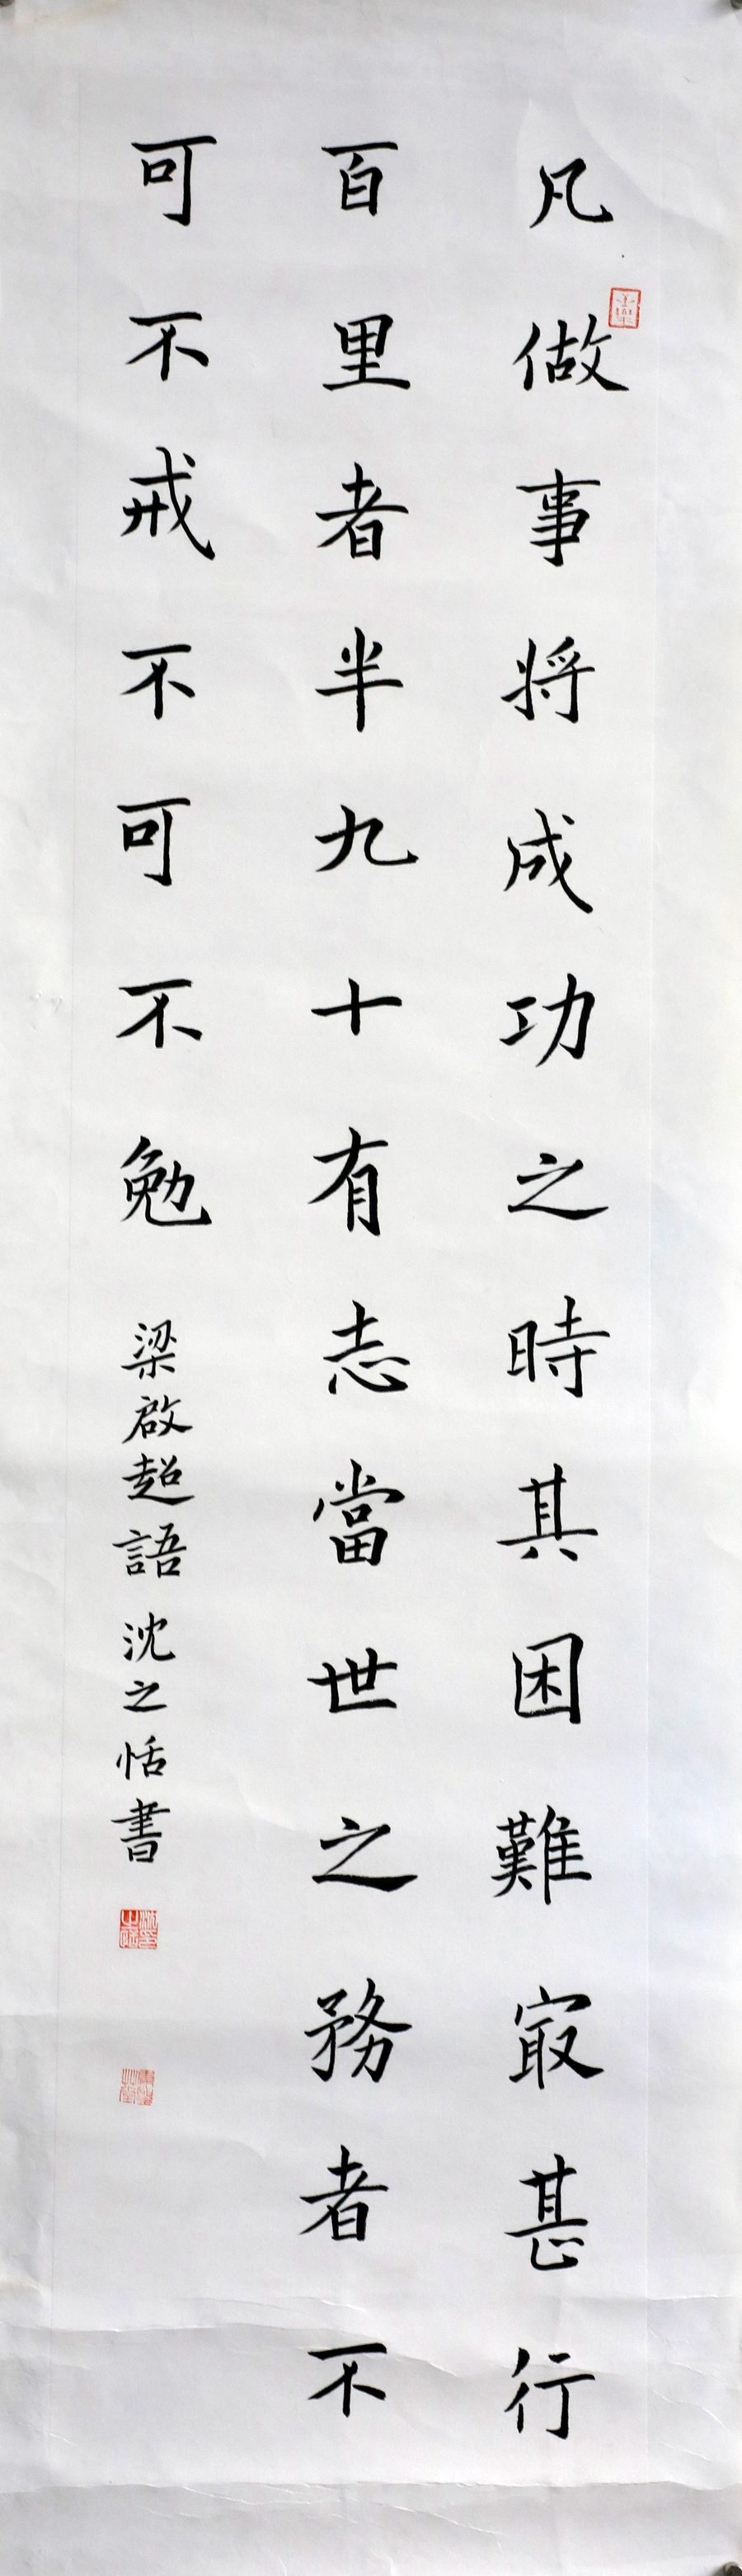 凡做事将成功之時其困難㝡甚行
百里者半九十有志當世之務者不
可不戒不可不勉
梁啟超語沈之恬書